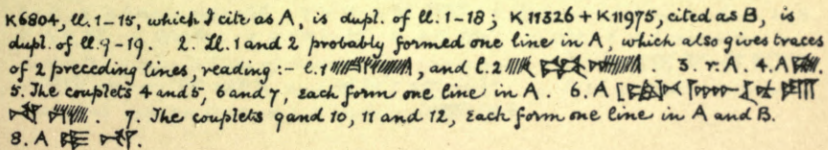 K6804, ll. 1-15, which I cite as A, is dupl. of ll. 1-18; K 11326 + K 11975, cited as B, is
dupl. of ll. 9-19. 2. Ll. 1 and 2 probably formed one line in A, which also gives traces
of 2 preceding lines, reading :- l. 1 , and l. 2 . 3. r. A. 4. A .
5. The couplets 4 and 5, 6 and 7, each form one line in A. 6. A [
. 7. The couplets 9 and 10, 11 and 12, each form one line in A and B.
8. A .